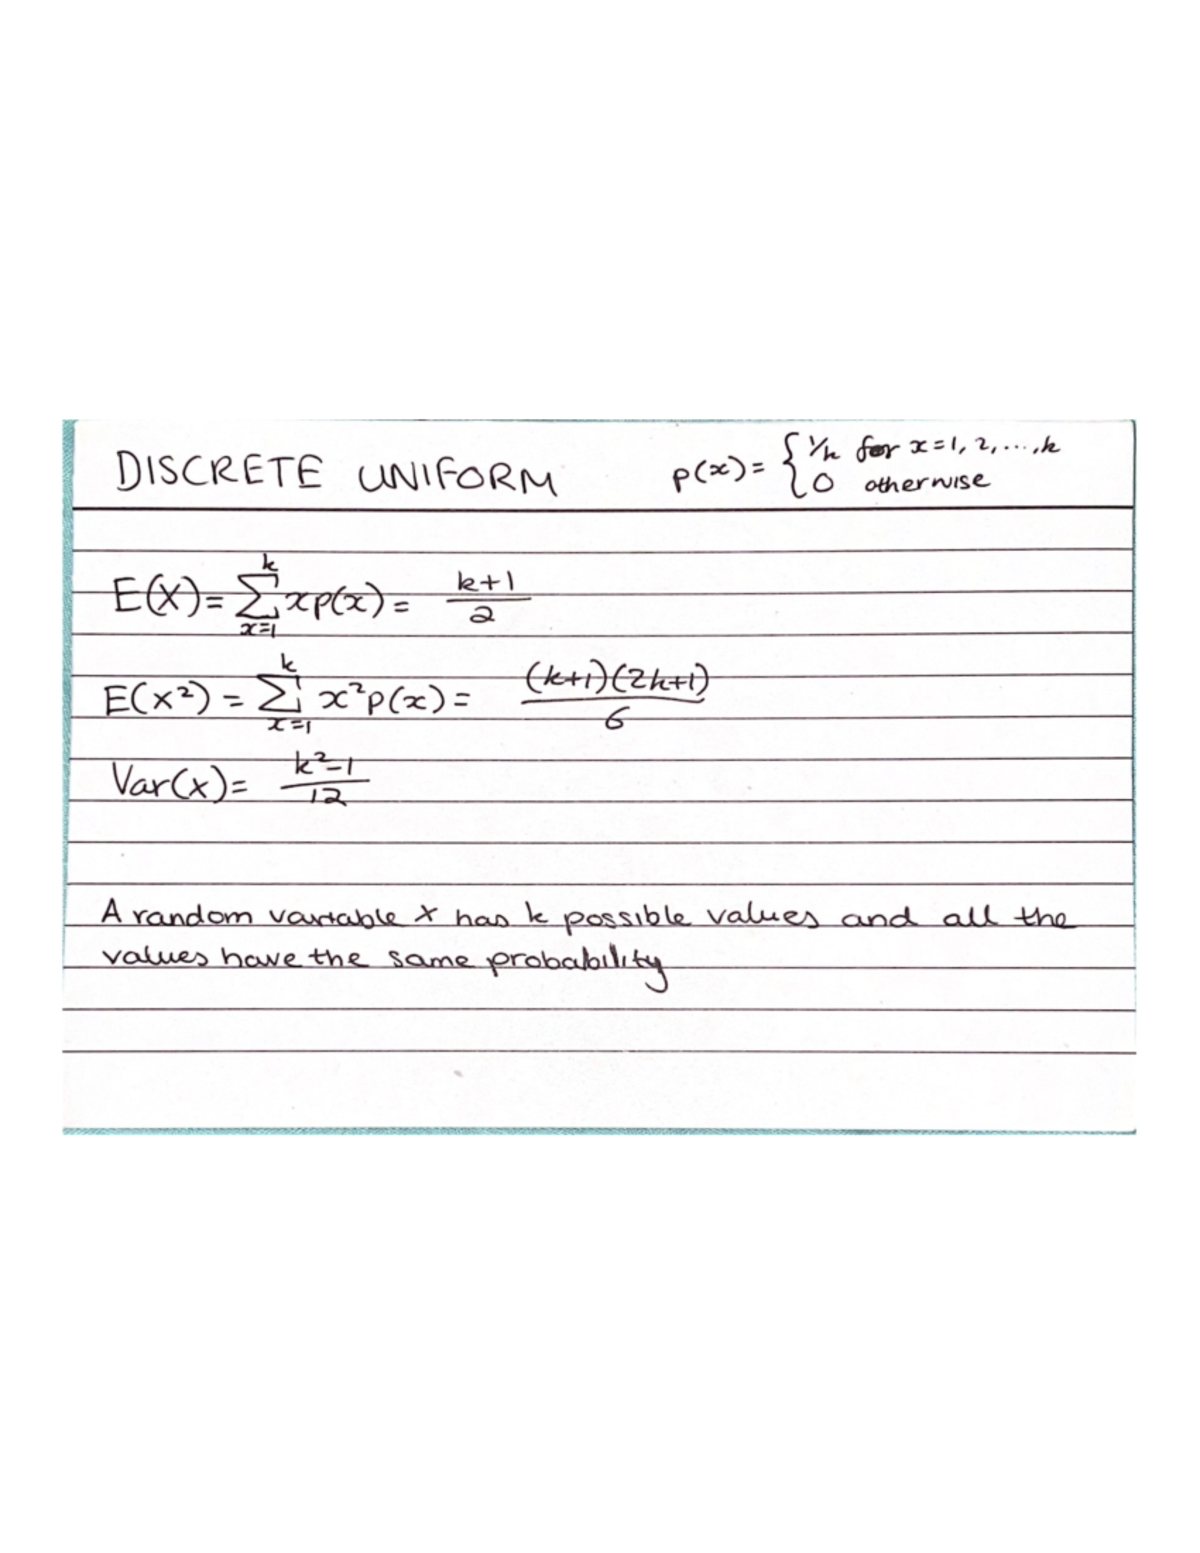 DISCRETE UNIFORM p(x) = { 1/k for x=1, 2, ..., k
0 otherwise
E(X) = ∑_{x=1}^{k} xp(x) = (k+1)/2
E(X²) = ∑_{x=1}^{k} x²p(x) = (k+1)(2k+1)/6
Var(X) = (k²-1)/12
A random variable X has k possible values and all the
values have the same probability